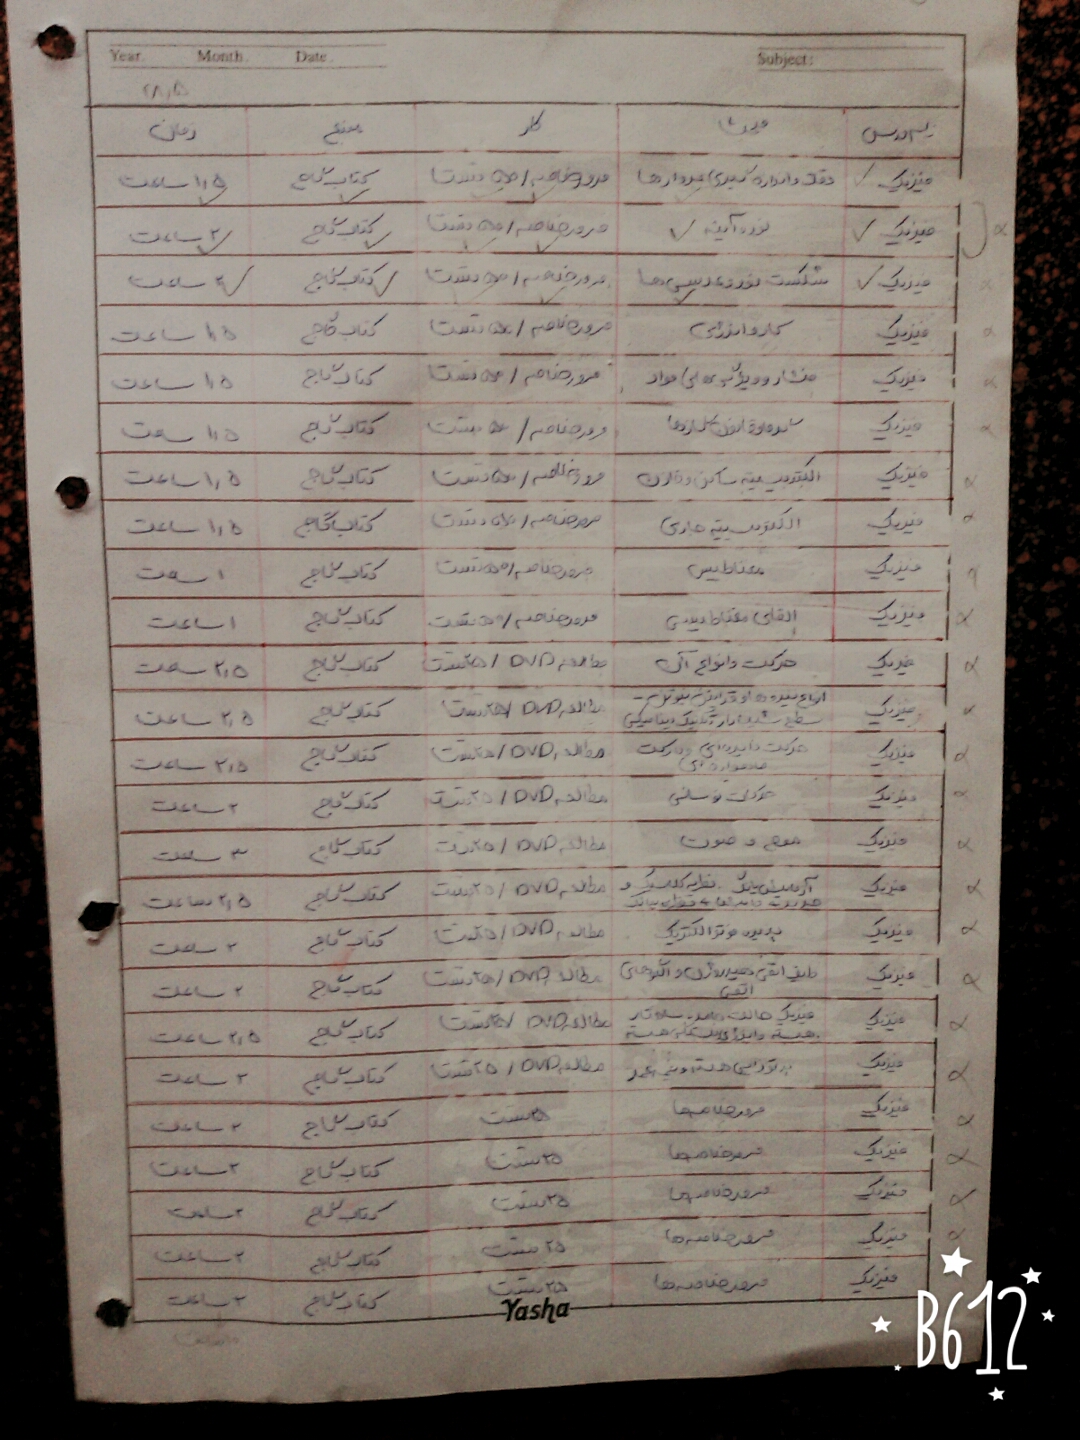 Year. Month. Date. Subject:
۲۸,۵
نام درس مبحث کار منبع زمان
فیزیک دقت و اندازه گیری/بردارها مرور خلاصه/۵۰ تست کتاب گاج ۱,۵ ساعت
فیزیک نور و آینه مرور خلاصه/۵۰ تست کتاب گاج ۲ ساعت
فیزیک شکست نور و عدسی ها مرور خلاصه/۵۰ تست کتاب گاج ۲ ساعت
فیزیک کار و انرژی مرور خلاصه/۵۰ تست کتاب گاج ۱,۵ ساعت
فیزیک فشار و ویژگی های مواد مرور خلاصه/۵۰ تست کتاب گاج ۱,۵ ساعت
فیزیک گرما و قانون گازها مرور خلاصه/۵۰ تست کتاب گاج ۱,۵ ساعت
فیزیک الکتریسیته ساکن و خازن مرور خلاصه/۵۰ تست کتاب گاج ۱,۵ ساعت
فیزیک الکتریسیته جاری مرور خلاصه/۵۰ تست کتاب گاج ۱,۵ ساعت
فیزیک مغناطیس مرور خلاصه/۵۰ تست کتاب گاج ۱ ساعت
فیزیک القای مغناطیسی مرور خلاصه/۵۰ تست کتاب گاج ۱ ساعت
فیزیک حرکت و انواع آن مطالعه DVD/۲۵ تست کتاب گاج ۲,۵ ساعت
فیزیک انواع نیروها و قوانین نیوتن - مطالعه DVD/۲۵ تست کتاب گاج ۲,۵ ساعت
سطح شیبدار و تکنیک دینامیکی
فیزیک حرکت دایره ای و حرکت مطالعه DVD/۲۵ تست کتاب گاج ۲,۵ ساعت
ماهواره ای
فیزیک حرکت نوسانی مطالعه DVD/۲۵ تست کتاب گاج ۲ ساعت
فیزیک موج و صوت مطالعه DVD/۲۵ تست کتاب گاج ۳ ساعت
فیزیک آزمایش یانگ نظریه کلاسیک و مطالعه DVD/۲۵ تست کتاب گاج ۲,۵ ساعت
فیزیک پدیده فوتوالکتریک مطالعه DVD/۲۵ تست کتاب گاج ۲ ساعت
فیزیک طیف اتمی هیدروژن و الگوهای مطالعه DVD/۲۵ تست کتاب گاج ۲ ساعت
اتمی
فیزیک فیزیک حالت جامد ساختار مطالعه DVD/۲۵ تست کتاب گاج ۲,۵ ساعت
هسته و انرژی هسته
فیزیک پرتوزایی هسته و نیمه عمر مطالعه DVD/۲۵ تست کتاب گاج ۲ ساعت
فیزیک مرور خلاصه ها ۲۵ تست کتاب گاج ۲ ساعت
فیزیک مرور خلاصه ها ۲۵ تست کتاب گاج ۲ ساعت
فیزیک مرور خلاصه ها ۲۵ تست کتاب گاج ۲ ساعت
فیزیک مرور خلاصه ها ۲۵ تست کتاب گاج ۲ ساعت
فیزیک مرور خلاصه ها ۲۵ تست کتاب گاج ۲ ساعت
Yasha
B612